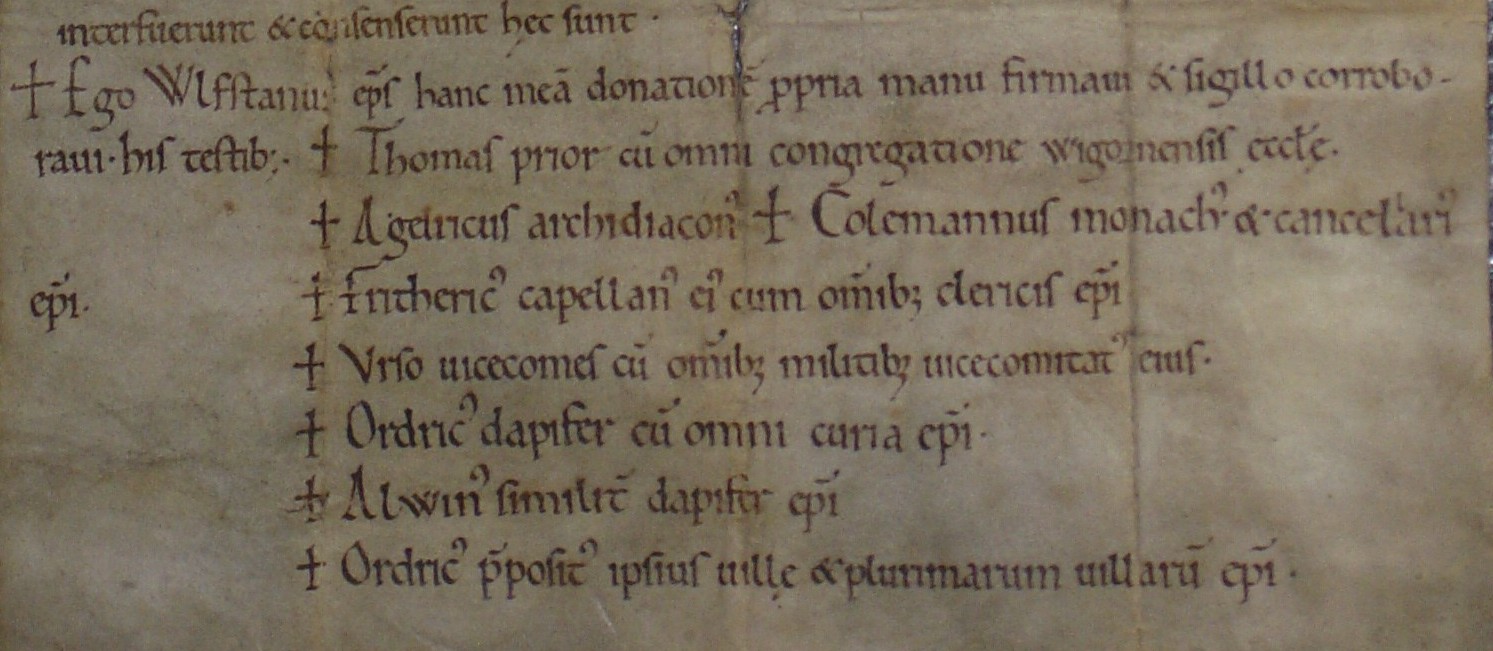 interfuerunt & consenserunt hęc sunt ·
✝ Ego Wlfstanus ep̄s hanc meā donationē ꝓpria manu firmaui & sigillo corrobo-
raui · his testib; · ✝ Thomas prior cū omni congregatione wigornensis ęccłę ·
✝ Agelricus archidiaconꝰ ✝ Colemannus monachꝰ & cancellariꝰ
ep̄i ·
✝ Frithericꝰ capellanꝰ eiꝰ cum om̄ib; clericis ep̄i
✝ Vrso uicecomes cū om̄ib; militib; uicecomitatꝰ eius ·
✝ Ordricꝰ dapifer cū omni curia ep̄i ·
✝ Alwinꝰ similit̄ dapifer ep̄i
✝ Ordricꝰ p̄positꝰ ipsius uillę & plurimarum uillarū ep̄i ·